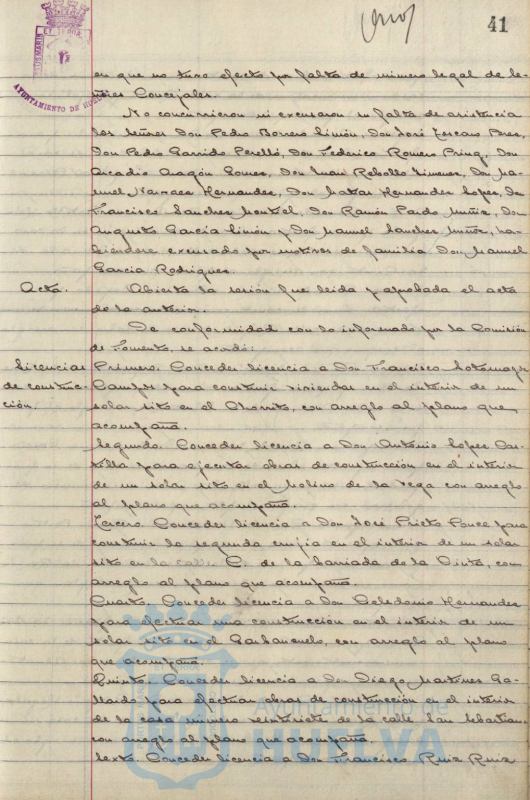 41
AYUNTAMIENTO DE HUELVA
en que no tuvo efecto por falta de número legal de Se-
ñores Concejales.
No concurrieron ni excusaron su falta de asistencia
los señores Don Pedro Borrero Limón, Don José Toscano Pérez,
Don Pedro Garrido Perelló, Don Federico Romero Don
Arcadio Aragón Gómez, Don Juan Rebollo Jimenez, Don Ma-
nuel Narraca Hernandez, Don Matias Hernandez Lopez, Don
Francisco Sanchez Don Ramón Pardo Muñiz, Don
Augusto García Limón y Don Manuel Sanchez Muñoz, ha-
biéndose excusado por motivos de familia Don Manuel
García Rodriguez.
Acta. Abierta la sesión fue leida y aprobada el acta
de la anterior.
De conformidad con lo informado por la Comisión
de Fomento, se acordó:
Licencias Primero. Conceder licencia a Don Francisco Sotomayor
de construc- Campos para construir viviendas en el interior de un
ción. solar sito en el Chorrito, con arreglo al plano que
acompaña.
Segundo. Conceder licencia a Don Antonio Lopez Cas-
tilla para ejecutar obras de construcción en el interior
de un solar sito en el Molino de la Vega con arreglo
al plano que acompaña.
Tercero. Conceder licencia a Don José Prieto Ponce para
construir la segunda crujia en el interior de un solar
sito en la calle C. de la barriada de la Cinta, con
arreglo al plano que acompaña.
Cuarto. Conceder licencia a Don Celedonio Hernandez
para efectuar una construcción en el interior de un
solar sito en el Garbanzuelo, con arreglo al plano
que acompaña.
Quinto. Conceder licencia a Don Diego Martinez Ga-
llardo para efectuar obras de construcción en el interior
de la casa número veintisiete de la calle San Sebastian
con arreglo al plano que acompaña.
Sexto. Conceder licencia a Don Francisco Ruiz Ruiz
Ayuntamiento de
HUELVA